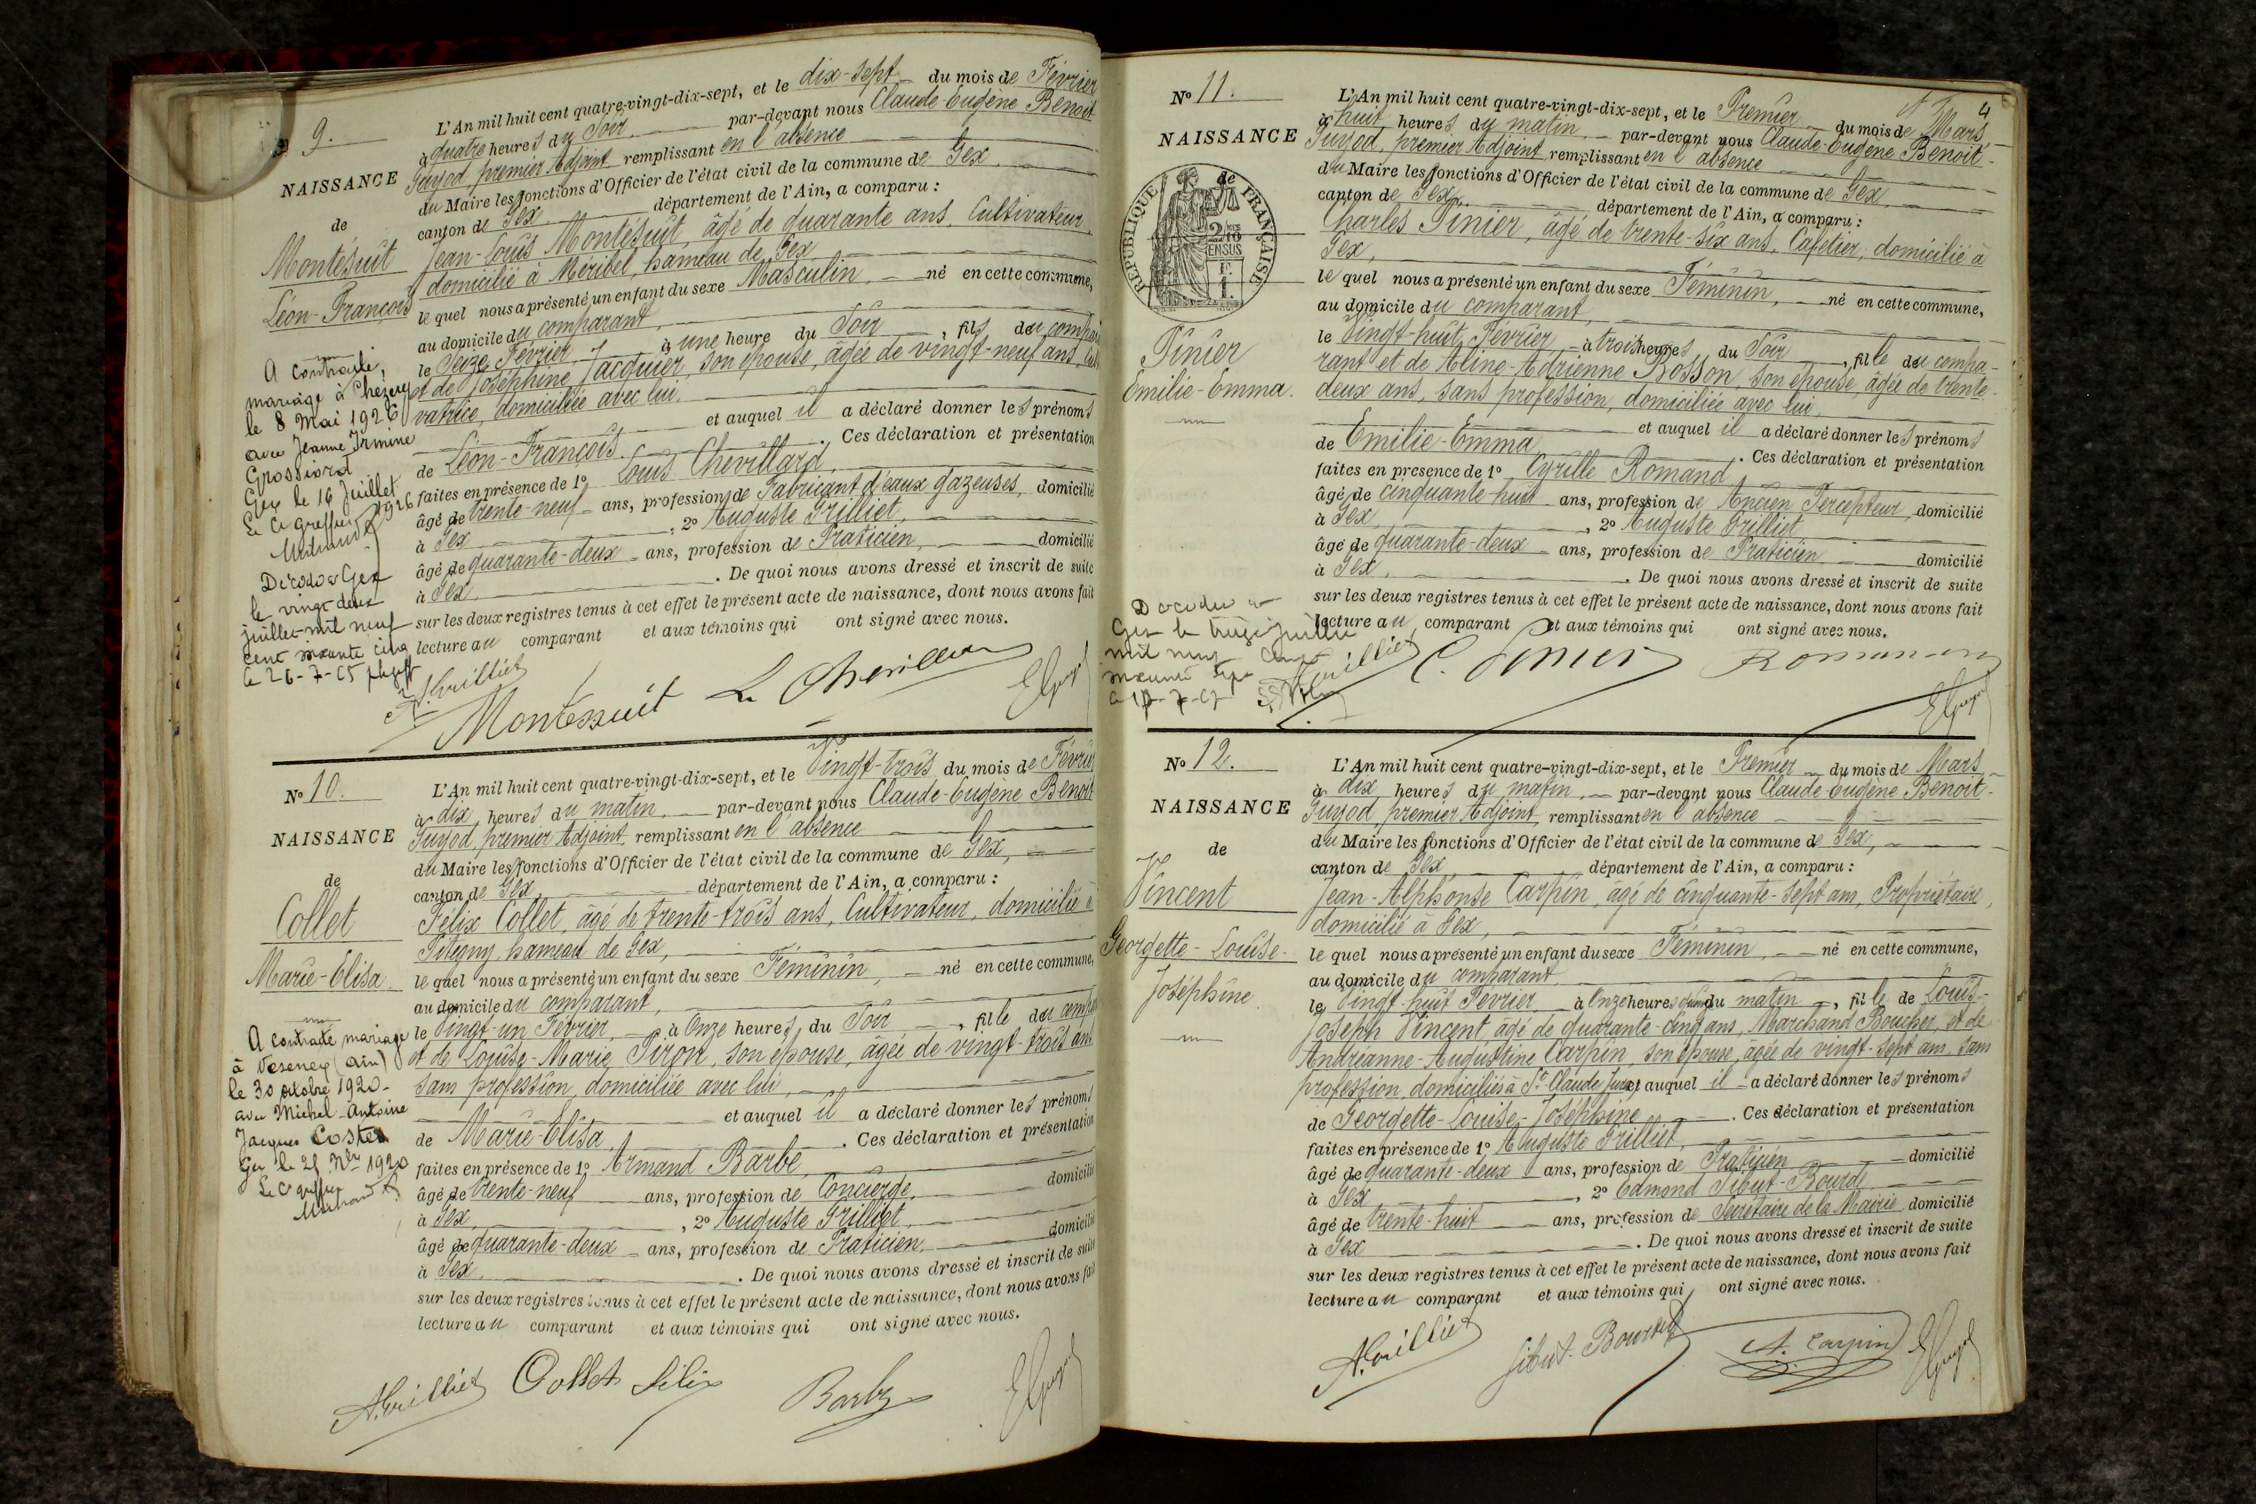 9.
NAISSANCE
de
Montésuit
Léon-François
A contracté,
mariage à Chézery
le 8 Mai 1926
avec Jeanne Irmine
Grossiord
Gex le 16 Juillet
1926
Le Cis greffier
Décédé à Gex
le vingt deux
juillet mil neuf
cent soixante cinq
le 26-7-65
L'An mil huit cent quatre-vingt-dix-sept, et le dix-sept du mois de Février
à quatre heures du Soir par-devant nous Claude-Eugène Benoit
Guyod, premier Adjoint remplissant en l'absence
du Maire les fonctions d'Officier de l'état civil de la commune de Gex
canton de Gex département de l'Ain, a comparu :
Jean-Louis Montésuit, âgé de quarante ans, Cultivateur
domicilié à Méribel, hameau de Gex
le quel nous a présenté un enfant du sexe Masculin, né en cette commune,
au domicile du comparant,
le Seize Février à une heure du Soir, fils du compa
et de Joséphine Jacquier, son épouse, âgée de vingt-neuf ans, Culti
vatrice, domiciliée avec lui.
et auquel il a déclaré donner les prénoms
de Léon-François. Ces déclaration et présentation
faites en présence de 1º Louis Chevillard,
âgé de trente-neuf ans, profession de Fabricant d'eaux gazeuses, domicilié
à Gex, 2º Auguste Grilliet,
âgé de quarante-deux ans, profession de Praticien, domicilié
à Gex. De quoi nous avons dressé et inscrit de suite
sur les deux registres tenus à cet effet le présent acte de naissance, dont nous avons fait
lecture au comparant et aux témoins qui ont signé avec nous.
A. Grilliet
Montessuit L. Chevillard EGuyod
Nº 10.
NAISSANCE
de
Collet
Marie-Elisa
A contracté mariage
à Vesenex (Ain)
le 30 octobre 1920
avec Michel-Antoine
Jacques Coster
Gex le 25 Nbre 1920
Le Cis greffier
L'An mil huit cent quatre-vingt-dix-sept, et le Vingt-trois du mois de Février
à dix heures du matin par-devant nous Claude-Eugène Benoit
Guyod, premier Adjoint remplissant en l'absence
du Maire les fonctions d'Officier de l'état civil de la commune de Gex,
canton de Gex département de l'Ain, a comparu :
Félix Collet, âgé de trente-trois ans, Cultivateur, domicilié à
Pitegny, hameau de Gex,
le quel nous a présenté un enfant du sexe Féminin, né en cette commune,
au domicile du comparant,
le Vingt-un Février à Onze heures du Soir, fille du compa
et de Louise-Marie Piron, son épouse, âgée de vingt-trois ans
sans profession, domiciliée avec lui,
et auquel il a déclaré donner les prénoms
de Marie-Elisa. Ces déclaration et présentation
faites en présence de 1º Armand Barbe,
âgé de trente-neuf ans, profession de Concierge, domicilié
à Gex, 2º Auguste Grilliet,
âgé de quarante-deux ans, profession de Praticien, domicilié
à Gex. De quoi nous avons dressé et inscrit de suite
sur les deux registres tenus à cet effet le présent acte de naissance, dont nous avons fait
lecture au comparant et aux témoins qui ont signé avec nous.
A. Grilliet Collet Félix Barbe EGuyod
4
Nº 11.
NAISSANCE
de
RÉPUBLIQUE FRANÇAISE
Pinier
Emilie-Emma.
Décédée à
Gex le treize juillet
mil neuf cent
soixante sept
L'An mil huit cent quatre-vingt-dix-sept, et le Premier du mois de Mars
à huit heures du matin par-devant nous Claude-Eugène Benoit-
Guyod, premier Adjoint remplissant en l'absence
du Maire les fonctions d'Officier de l'état civil de la commune de Gex
canton de Gex, département de l'Ain, a comparu :
Charles Pinier, âgé de trente-six ans, Cafetier, domicilié à
Gex,
le quel nous a présenté un enfant du sexe Féminin, né en cette commune,
au domicile du comparant,
le Vingt-huit Février à trois heures du Soir, fille du compa-
rant et de Aline-Adrienne Bosson, son épouse, âgée de trente-
deux ans, sans profession, domiciliée avec lui,
et auquel il a déclaré donner les prénoms
de Emilie-Emma. Ces déclaration et présentation
faites en présence de 1º Cyrille Romand
âgé de cinquante-huit ans, profession de Ancien Percepteur, domicilié
à Gex, 2º Auguste Grilliet
âgé de quarante-deux ans, profession de Praticien domicilié
à Gex. De quoi nous avons dressé et inscrit de suite
sur les deux registres tenus à cet effet le présent acte de naissance, dont nous avons fait
lecture au comparant et aux témoins qui ont signé avec nous.
A. Grilliet C. Pinier Romand
EGuyod
Nº 12.
NAISSANCE
de
Vincent
Georgette-Louise-
Joséphine
L'An mil huit cent quatre-vingt-dix-sept, et le Premier du mois de Mars
à dix heures du matin, par-devant nous Claude-Eugène Benoit-
Guyod, premier Adjoint, remplissant en l'absence
du Maire les fonctions d'Officier de l'état civil de la commune de Gex,
canton de Gex, département de l'Ain, a comparu :
Jean-Alphonse Carpin, âgé de cinquante-sept ans, Propriétaire,
domicilié à Gex,
le quel nous a présenté un enfant du sexe Féminin, né en cette commune,
au domicile du comparant
le Vingt-huit Février à Onze heures du matin, fille de Louis-
Joseph Vincent, âgé de quarante-cinq ans, Marchand Boucher, et de
Andréanne-Augustine Carpin, son épouse, âgée de vingt-sept ans, sans
profession, domiciliés à St Claude Jura, et auquel il a déclaré donner les prénoms
de Georgette-Louise-Joséphine. Ces déclaration et présentation
faites en présence de 1º Auguste Grilliet,
âgé de quarante-deux ans, profession de Praticien domicilié
à Gex, 2º Edmond Sibut-Bourde
âgé de trente-huit ans, profession de Secrétaire de la Mairie domicilié
à Gex. De quoi nous avons dressé et inscrit de suite
sur les deux registres tenus à cet effet le présent acte de naissance, dont nous avons fait
lecture au comparant et aux témoins qui ont signé avec nous.
A. Grilliet Sibut-Bourde A. Carpin EGuyod